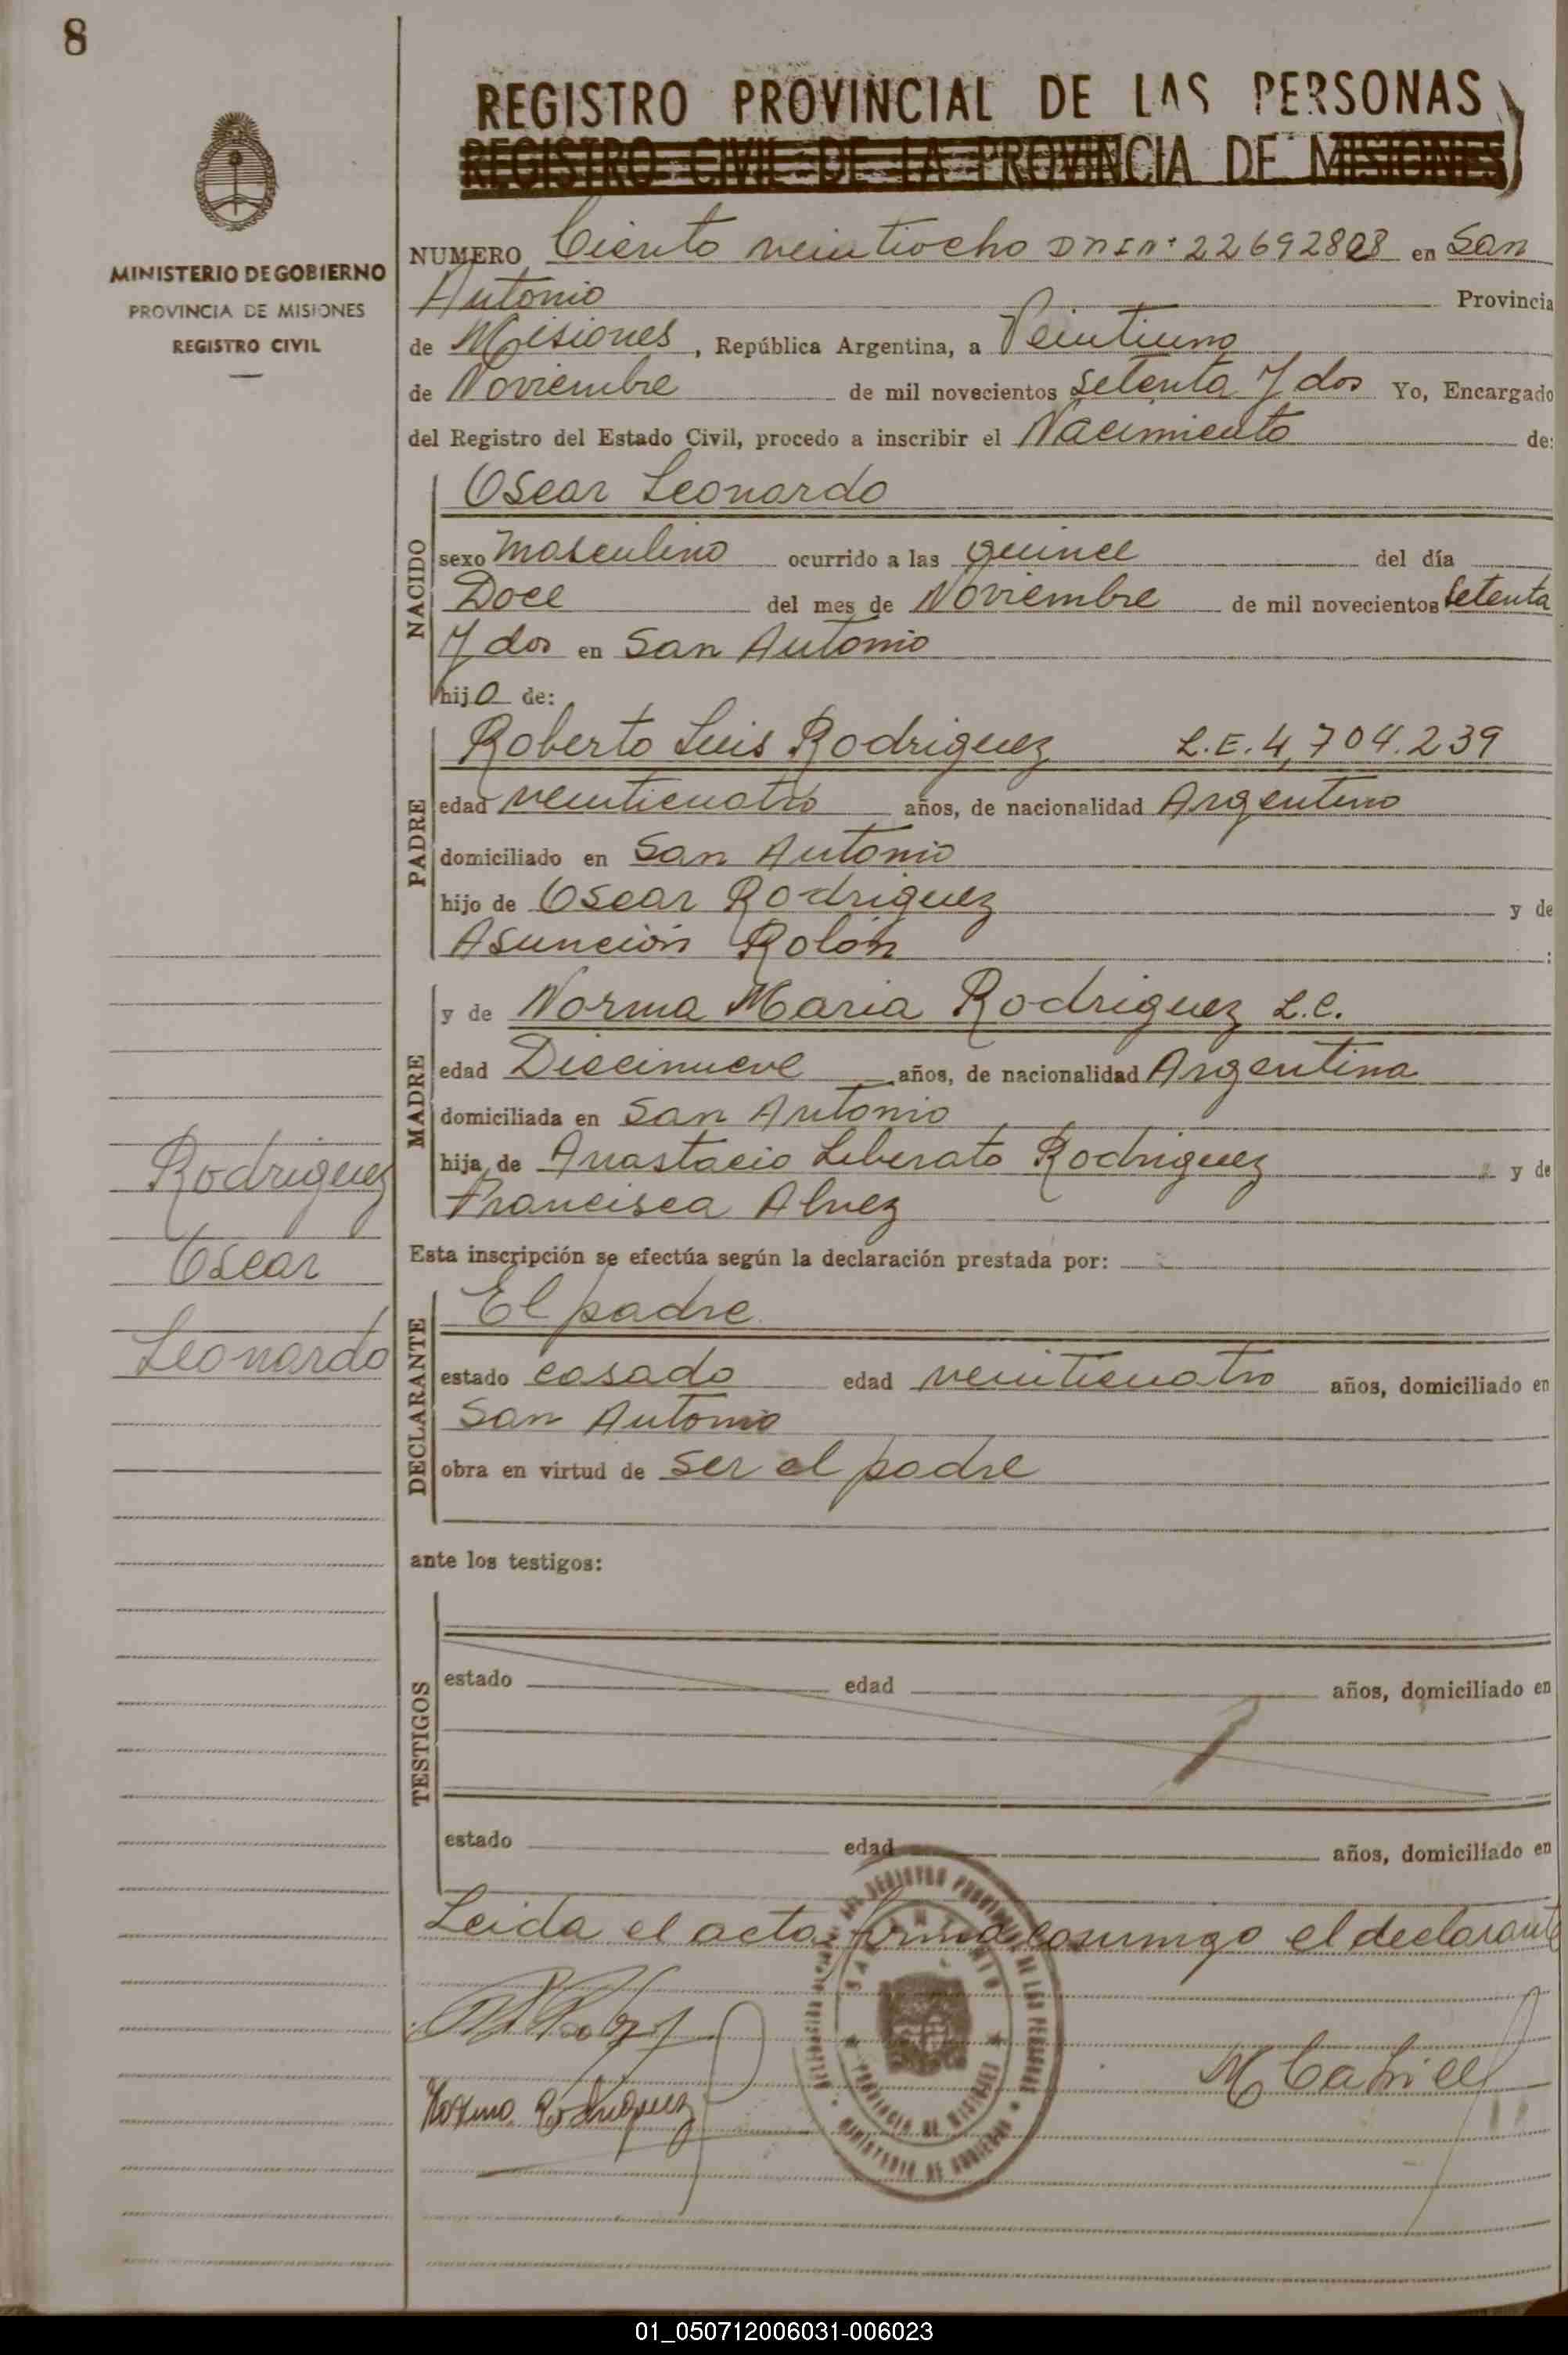 8
REGISTRO PROVINCIAL DE LAS PERSONAS
REGISTRO CIVIL DE LA PROVINCIA DE MISIONES
MINISTERIO DE GOBIERNO
PROVINCIA DE MISIONES
REGISTRO CIVIL
NUMERO Ciento veintiocho DNI nº 22692808 en San
Antonio Provincia
de Misiones, República Argentina, a Veintiuno
de Noviembre de mil novecientos setenta y dos Yo, Encargado
del Registro del Estado Civil, procedo a inscribir el Nacimiento de:
NACIDO
Oscar Leonardo
sexo masculino ocurrido a las quince del día
Doce del mes de Noviembre de mil novecientos setenta
y dos en San Antonio
hijo de:
PADRE
Roberto Luis Rodriguez L.E. 4,704.239
edad veinticuatro años, de nacionalidad Argentino
domiciliado en San Antonio
hijo de Oscar Rodriguez y de
Asunción Rolón :
MADRE
y de Norma Maria Rodriguez L.C.
edad Diecinueve años, de nacionalidad Argentina
domiciliada en San Antonio
hija de Anastacio Liberato Rodriguez y de
Francisca Alvez
Rodriguez
Oscar
Leonardo
Esta inscripción se efectúa según la declaración prestada por:
DECLARANTE
El padre
estado casado edad veinticuatro años, domiciliado en
San Antonio
obra en virtud de ser el padre
ante los testigos:
TESTIGOS
estado edad años, domiciliado en
estado edad años, domiciliado en
Leida el acta firma conmigo el declarante
Norma Rodriguez
PROVINCIA DE MISIONES
MINISTERIO DE GOBIERNO
01_050712006031-006023